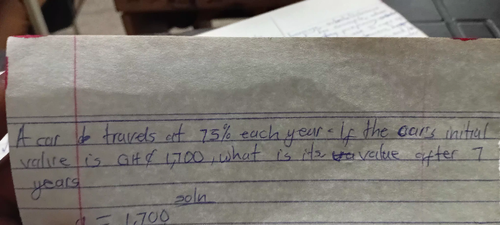 A car travels at 75% each year. If the cars initial
value is GH₵ 1,700, what is its value after 7
years
soln
= 1,700